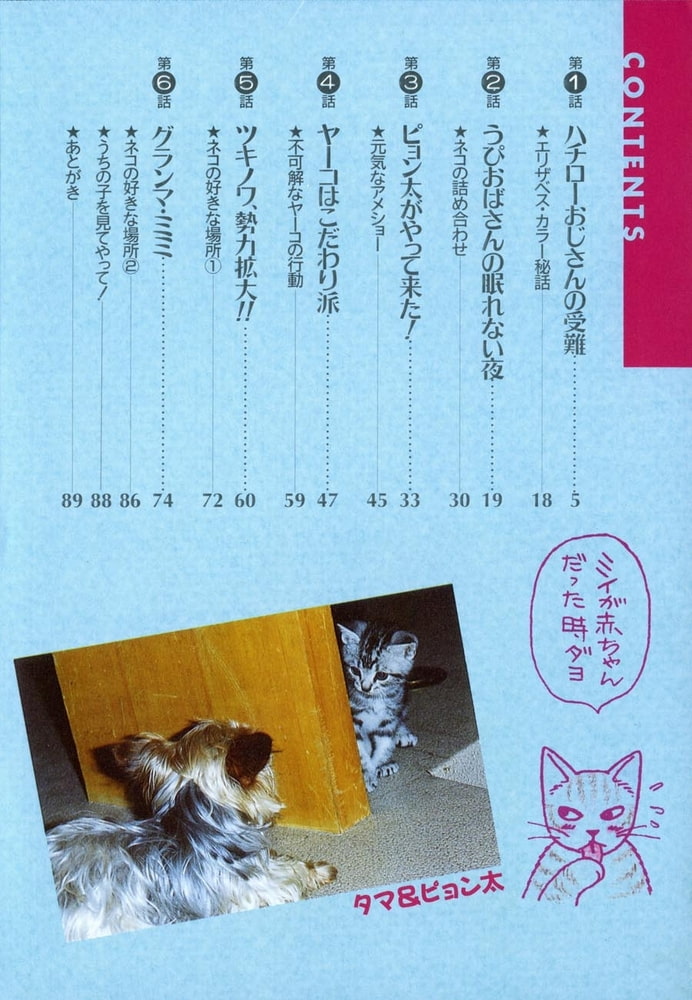 CONTENTS
第1話
ハチローおじさんの受難 5
★エリザベス・カラー秘話 18
第2話
うぴおばさんの眠れない夜 19
★ネコの詰め合わせ 30
第3話
ピョン太がやって来た! 33
★元気なアメショー 45
第4話
ヤーコはこだわり派 47
★不可解なヤーコの行動 59
第5話
ツキノワ、勢力拡大!! 60
★ネコの好きな場所① 72
第6話
グランマ・ミミ 74
★ネコの好きな場所② 86
★うちの子を見てやって! 88
★あとがき 89
ミイが赤ちゃん
だった時ダヨ
タマ&ピョン太